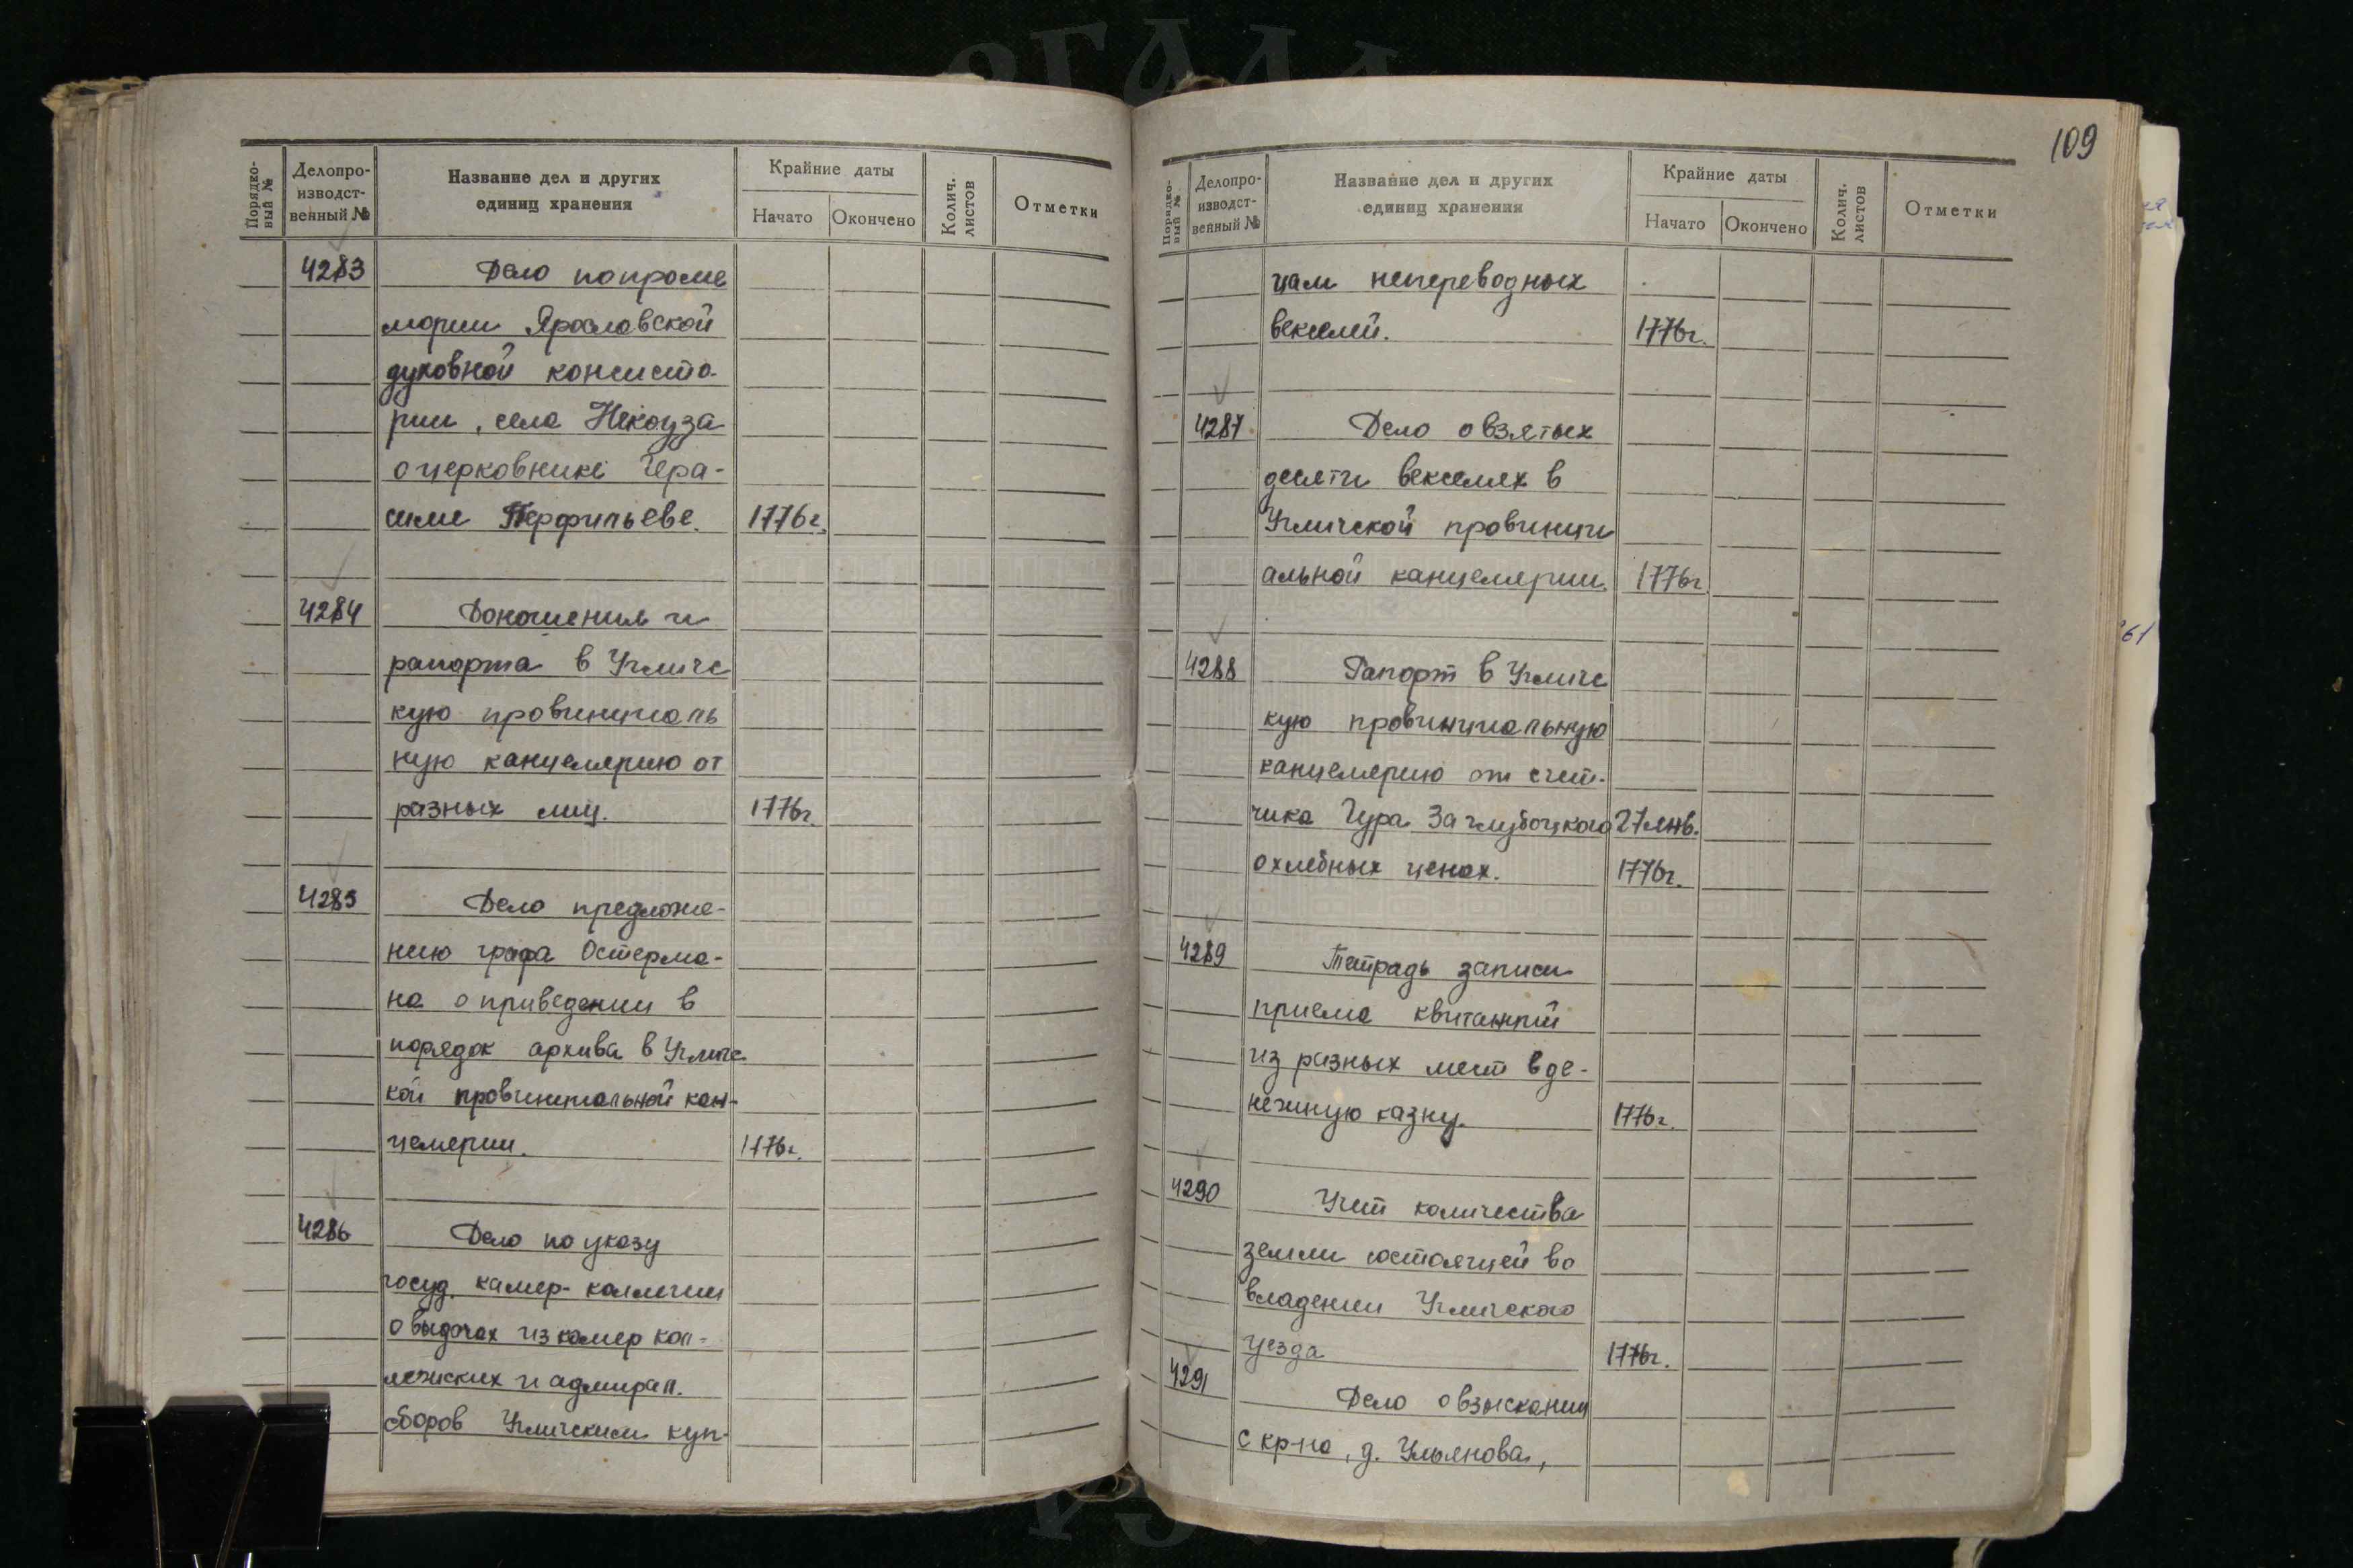 Порядко-
вый №
Делопро-
изводст-
венный №
Название дел и других
единиц хранения
Крайние даты
Начато
Окончено
Колич.
листов
Отметки
4283 Дело по проме
мории Ярославской
духовной консисто-
рии, села Некоуза
о церковнике Гера-
симе Перфильеве. 1776г.
4284 Доношения и
рапорта в Угличс
кую провинциаль
ную канцелярию от
разных лиц. 1776г.
4285 Дело предложе-
нию графа Остерма-
на о приведении в
порядок архива в Угличс
кой провинциальной кан-
целярии. 1776г.
4286 Дело по указу
госуд. камер-коллегии
о выдачах из камер кол-
лежских и адмирал.
сборов Угличским куп-
109
Порядко-
вый №
Делопро-
изводст-
венный №
Название дел и других
единиц хранения
Крайние даты
Начато
Окончено
Колич.
листов
Отметки
цам непереводных
векселей. 1776г.
4287 Дело о взятых
десяти векселях в
Угличской провинци
альной канцелярии 1776г
4288 Рапорт в Угличс
кую провинциальную
канцелярию от счет-
чика Гура Заглубоцкого 27 янв.
о хлебных ценах. 1776г.
4289 Тетрадь записи
приема квитанций
из разных мест в де-
нежную казну. 1776г.
4290 Учет количества
земли состоящей во
владении Угличского
уезда 1776г.
4291 Дело о взыскании
с кр-на, д. Ульянова,
61